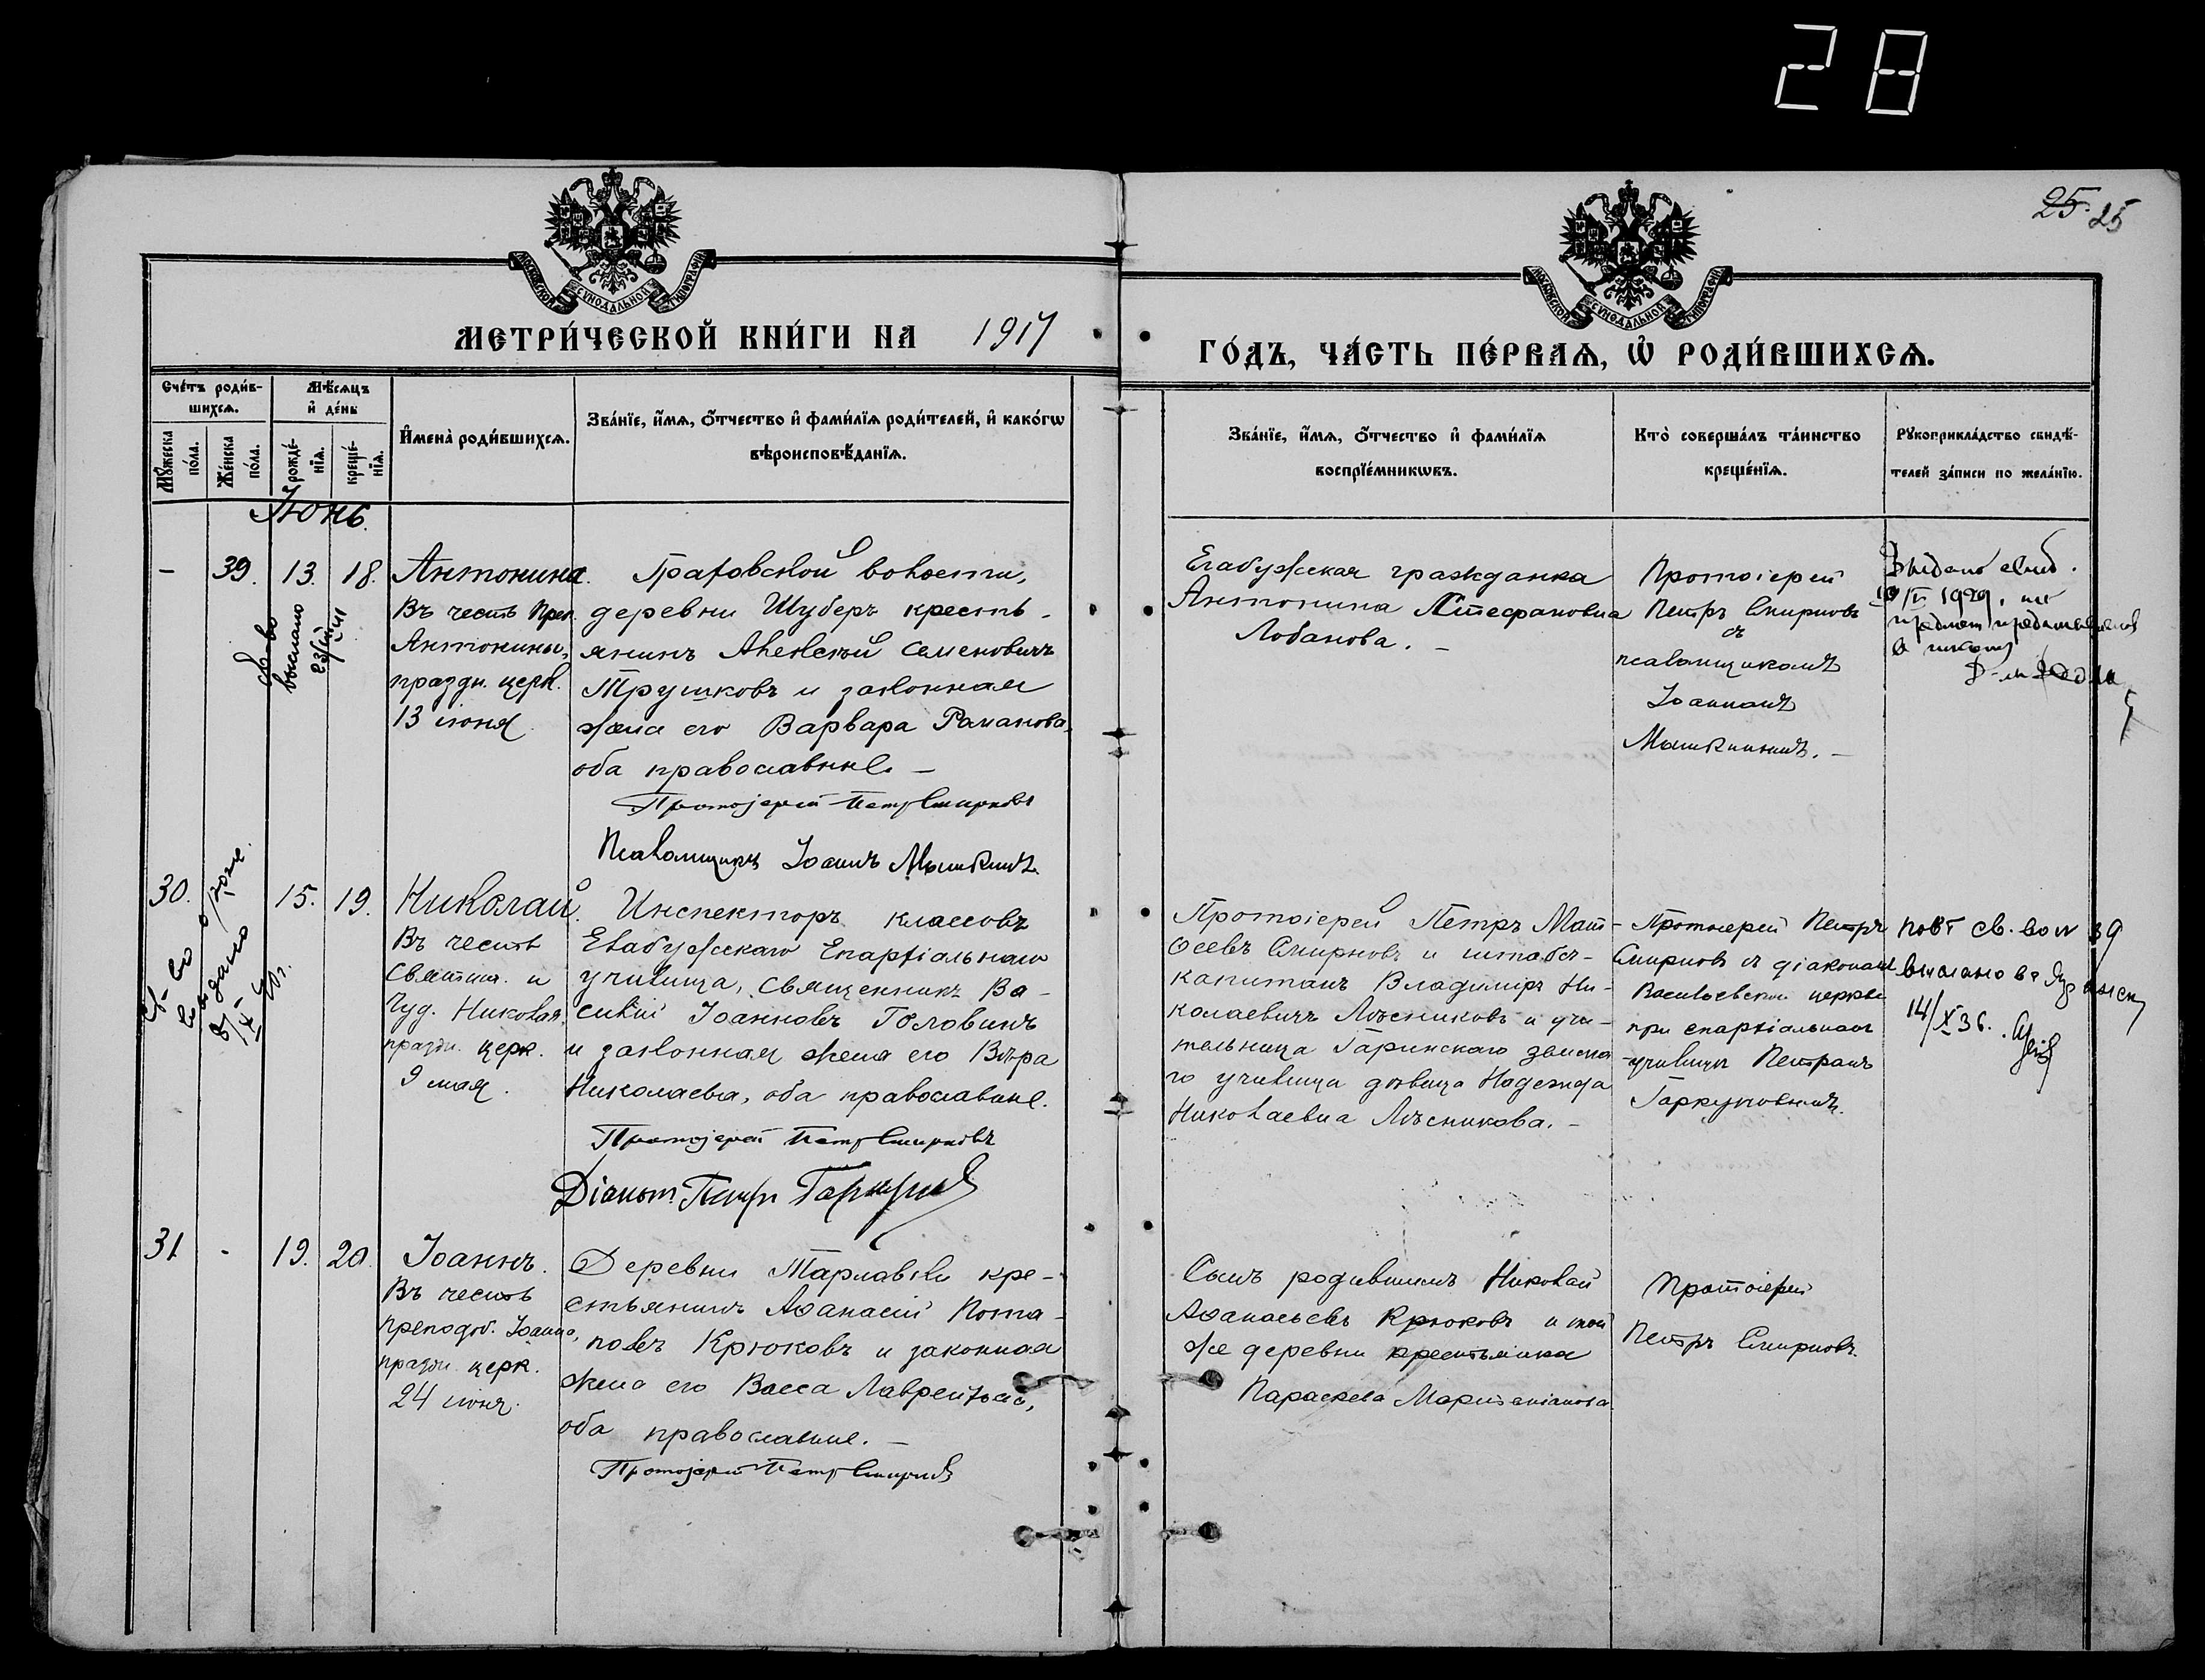 28
25. 25
МОСКОВСКОЙ СѴНОДАЛЬНОЙ ТИПОГРАФІИ
МОСКОВСКОЙ СѴНОДАЛЬНОЙ ТИПОГРАФІИ
МЕТРИ́ЧЕСКОЙ КНИ́ГИ НА 1917
ГО́ДЪ, ЧА́СТЬ ПЕ́РВАѦ, Ѡ҆ РОДИ́ВШИХСѦ.
Сче́тъ роди́в-
шихсѧ.
Мꙋ́жеска
по́ла.
Же́нска
по́ла.
Мѣ́сѧцъ
и҆ де́нь
рожде́-
нїѧ.
креще́-
нїѧ.
И҆мена̀ роди́вшихсѧ.
Зва́нїе, и҆́мѧ, ѻ҆́тчество и҆ фами́лїѧ роди́телей, и҆ како́гѡ
вѣроисповѣ́данїѧ.
Зва́нїе, и҆́мѧ, ѻ҆́тчество и҆ фами́лїѧ
воспрїе́мникѡвъ.
Кто̀ соверша́лъ та́инство
креще́нїѧ.
Рꙋкоприкла́дство свидѣ́-
телей за́писи по жела́нїю.
Іюнь.
- 39. 13. 18.
св-во
выслано
Антонина.
Въ честь Преп.
Антонины,
праздн. церк.
13 іюня.
Граховской волости,
деревни Шуберъ кресть-
янинъ Алексѣй Семеновичъ
Трушковъ и законная
жена его Варвара Романова,
оба православные. -
Протоіерей Петръ Смирновъ
Псаломщикъ Іоаннъ Мышкинъ.
Елабужская гражданка
Антонина Стефановна
Лобанова. -
Протоіерей
Петръ Смирновъ
съ
псаломщикомъ
Іоанномъ
Мышкинымъ. -
Выдано свид.
1929, на
предмет представления
в школу
30. 15. 19.
св-во
выдано
Николай.
Въ честь
Святит. и
Чуд. Николая,
праздн. церк.
9 мая.
Инспекторъ классовъ
Елабужскаго Епархіальнаго
училища, священникъ Ва-
силій Іоанновъ Головинъ
и законная жена его Вѣра
Николаева, оба православные.
Протоіерей Петръ Смирновъ
Діаконъ Петръ
Протоіерей Петръ Мат-
ѳеевъ Смирновъ и штабсъ-
капитанъ Владиміръ Ни-
колаевичъ Лѣсниковъ и учи-
тельница Гаринскаго земска-
го училища дѣвица Надежда
Николаевна Лѣсникова. -
Протоіерей Петръ
Смирновъ съ діакономъ
Васильевской церкви
при епархіальномъ
училищѣ Петромъ
повт св. во № 39
выслано в
14/X 36.
31. - 19. 20.
Іоаннъ.
Въ честь
преподоб. Іоанна,
праздн. церк.
24 іюня.
Деревни Тарловки кре-
стьянинъ Аѳанасій Пота-
повъ Крюковъ и законная
жена его Васса Лаврентьева,
оба православные. -
Протоіерей Петръ Смирновъ
Сынъ родившихъ Николай
Аѳанасьевъ Крюковъ и той
же деревни крестьянка
Параскева
Протоіерей
Петръ Смирновъ.